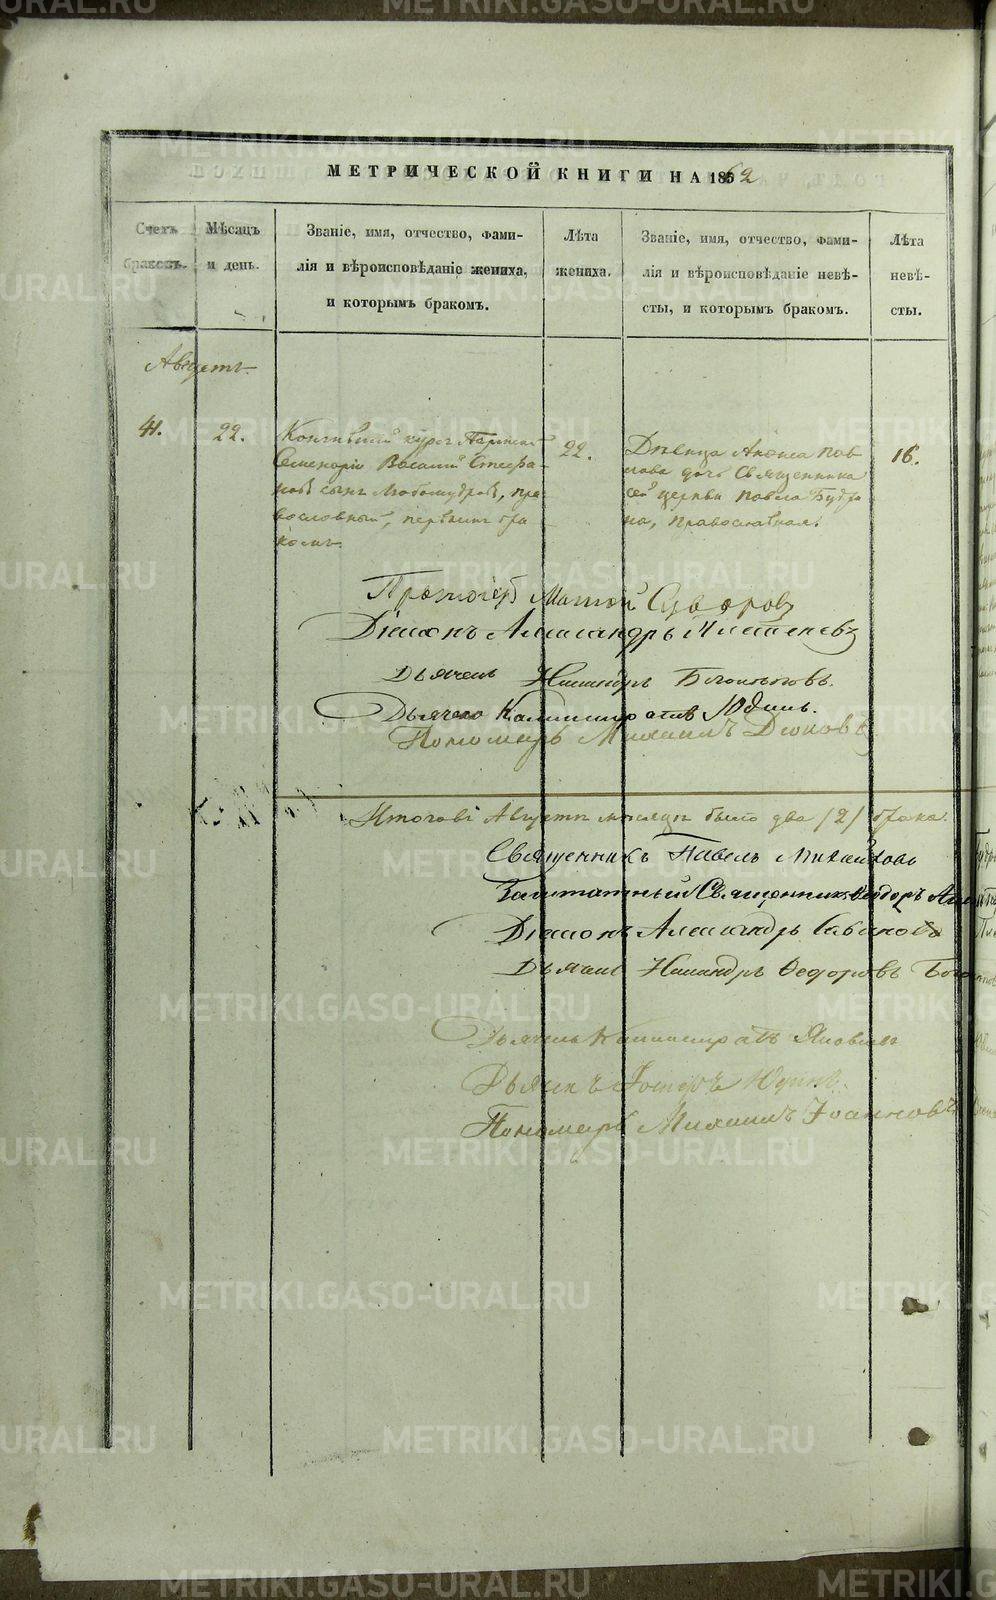 МЕТРИЧЕСКОЙ КНИГИ НА 1862
Счетъ браковъ.
Мѣсяцъ и день.
Званіе, имя, отчество, фами-
лія и вѣроисповѣданіе жениха,
и которымъ бракомъ.
Лѣта жениха.
Званіе, имя, отчество, фами-
лія и вѣроисповѣданіе невѣ-
сты, и которымъ бракомъ.
Лѣта невѣ-
сты.
Августъ.
41.
22.
Кончившій курсъ
Семинаріи Василій Стефа-
новъ сынъ Любомудровъ, пра
вославный, первымъ бра
комъ.
22.
Дѣвица Павлова дочь Священника
сей церкви Павла
православная.
16.
Протоіерей Суворовъ
Діаконъ Александръ
Дьячекъ
Дьячекъ Каллистратъ Юдинъ.
Пономарь Михаилъ
Итого въ Августѣ мѣсяцѣ было два /2/ брака.
Священникъ Павелъ Михайловъ
Заштатный Священникъ Ѳеодоръ
Діаконъ Александръ
Дьячекъ Ѳедоровъ
Дьячекъ Каллистратъ Яковлевъ
Дьячекъ Юдинъ
Пономарь Михаилъ Іоанновъ
METRIKI.GASO-URAL.RU